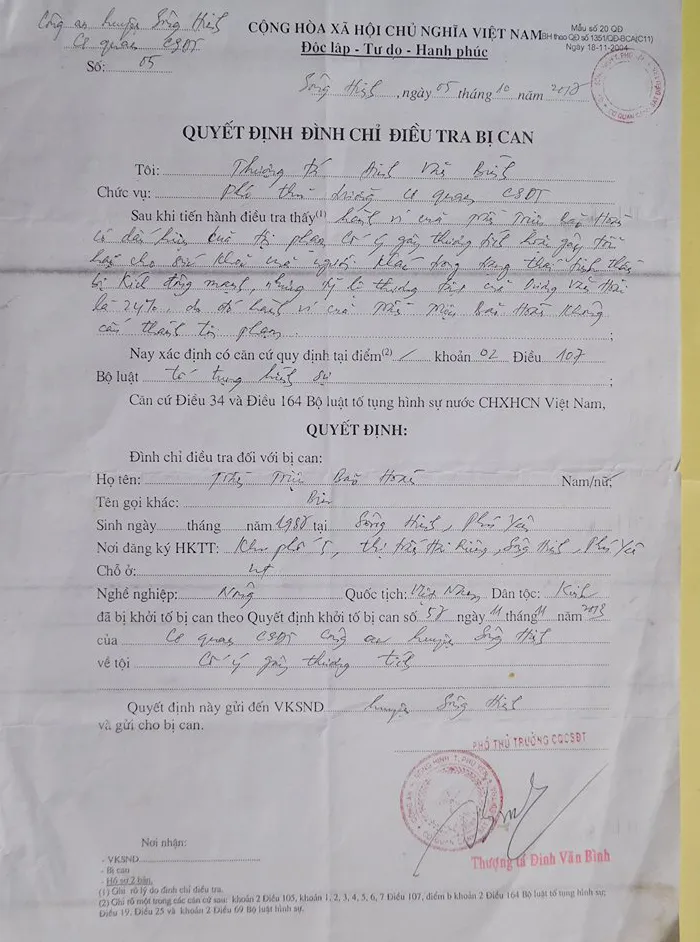 Công an huyện Sông Hinh
Cơ quan CSĐT
Số: 05
CỘNG HÒA XÃ HỘI CHỦ NGHĨA VIỆT NAM
Độc lập - Tự do - Hạnh phúc
Mẫu số 20 QĐ
BH theo QĐ số 1351/QĐ-BCA(C11)
Ngày 18-11-2004
Sông Hinh, ngày 05 tháng 10 năm
QUYẾT ĐỊNH ĐÌNH CHỈ ĐIỀU TRA BỊ CAN
Tôi: Thượng tá Đinh Văn Bình
Chức vụ: Phó thủ trưởng Cơ quan CSĐT
Sau khi tiến hành điều tra thấy(1) hành vi của Bảo Hoàn
có dấu hiệu của tội phạm Cố ý gây thương tích hoặc gây tổn
hại cho sức khỏe của người khác trong trạng thái tinh thần
bị kích động mạnh, nhưng tỷ lệ thương tích của Dương Văn
là 24%, do đó hành vi của Bảo Hoàn không
cấu thành tội phạm. ;
Nay xác định có căn cứ quy định tại điểm(2) / khoản 02 Điều 107
Bộ luật tố tụng hình sự ;
Căn cứ Điều 34 và Điều 164 Bộ luật tố tụng hình sự nước CHXHCN Việt Nam,
QUYẾT ĐỊNH:
Đình chỉ điều tra đối với bị can:
Họ tên: Bảo Hoàn Nam/nữ:
Tên gọi khác:
Sinh ngày tháng năm tại Sông Hinh, Phú Yên
Nơi đăng ký HKTT: Khu phố 5, thị trấn Hai Riêng, Sông Hinh, Phú Yên
Chỗ ở: nt
Nghề nghiệp: Nông Quốc tịch: Việt Nam Dân tộc: Kinh
đã bị khởi tố bị can theo Quyết định khởi tố bị can số ngày 11 tháng 11 năm
của Cơ quan CSĐT Công an huyện Sông Hinh
về tội Cố ý gây thương tích
Quyết định này gửi đến VKSND huyện Sông Hinh
và gửi cho bị can.
PHÓ THỦ TRƯỞNG CQCSĐT
Thượng tá Đinh Văn Bình
Nơi nhận:
- VKSND
- Bị can
- Hồ sơ 2 bản.
(1) Ghi rõ lý do đình chỉ điều tra.
(2) Ghi rõ một trong các căn cứ sau: khoản 2 Điều 105, khoản 1, 2, 3, 4, 5, 6, 7 Điều 107, điểm b khoản 2 Điều 164 Bộ luật tố tụng hình sự;
Điều 19, Điều 25 và khoản 2 Điều 69 Bộ luật hình sự.